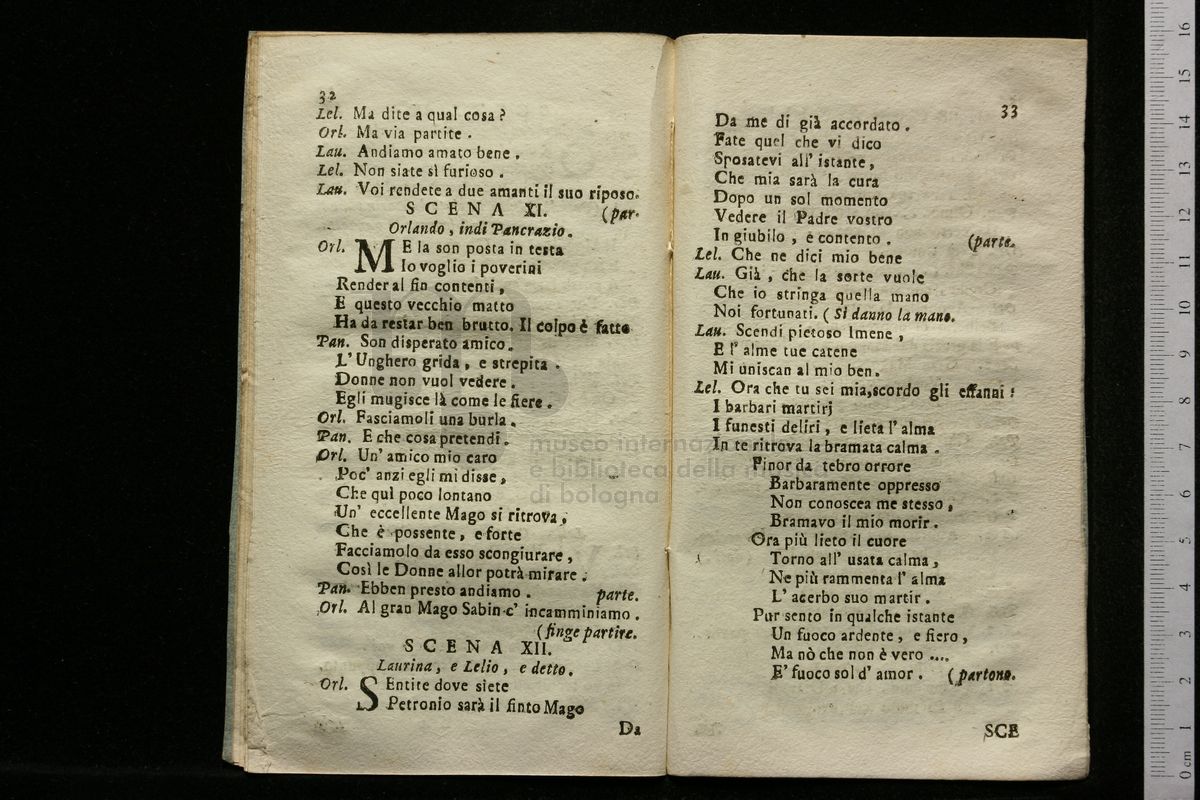 32
Lel. Ma dite a qual cosa?
Orl. Ma via partite.
Lau. Andiamo amato bene.
Lel. Non siate sì furioso.
Lau. Voi rendete a due amanti il suo riposo.
SCENA XI. (par.
Orlando, indi Pancrazio.
Orl. ME la son posta in testa
Io voglio i poverini
Render al fin contenti,
E questo vecchio matto
Ha da restar ben brutto. Il colpo è fatto
Pan. Son disperato amico.
L' Unghero grida, e strepita.
Donne non vuol vedere.
Egli mugisce là come le fiere.
Orl. Fasciamoli una burla.
Pan. E che cosa pretendi.
Orl. Un' amico mio caro
Poc' anzi egli mi disse,
Che quì poco lontano
Un' eccellente Mago si ritrova,
Che è possente, e forte
Facciamolo da esso scongiurare,
Così le Donne allor potrà mirare.
Pan. Ebben presto andiamo. parte.
Orl. Al gran Mago Sabin c' incamminiamo.
(finge partire.
SCENA XII.
Laurina, e Lelio, e detto.
Orl. SEntite dove siete
Petronio sarà il finto Mago
Da
33
Da me di già accordato.
Fate quel che vi dico
Sposatevi all' istante,
Che mia sarà la cura
Dopo un sol momento
Vedere il Padre vostro
In giubilo, e contento. (parte.
Lel. Che ne dici mio bene
Lau. Già, che la sorte vuole
Che io stringa quella mano
Noi fortunati. (Si danno la mano.
Lau. Scendi pietoso Imene,
E l' alme tue catene
Mi uniscan al mio ben.
Lel. Ora che tu sei mia, scordo gli effanni:
I barbari martirj
I funesti deliri, e lieta l' alma
In te ritrova la bramata calma.
Finor da tebro orrore
Barbaramente oppresso
Non conoscea me stesso,
Bramavo il mio morir.
Ora più lieto il cuore
Torno all' usata calma,
Ne più rammenta l' alma
L' acerbo suo martir.
Pur sento in qualche istante
Un fuoco ardente, e fiero,
Ma nò che non è vero ....
E' fuoco sol d' amor. (partono.
SCE
museo internazionale
e biblioteca della musica
di bologna
16
15
14
13
12
11
10
9
8
7
6
5
4
3
2
1
0 cm